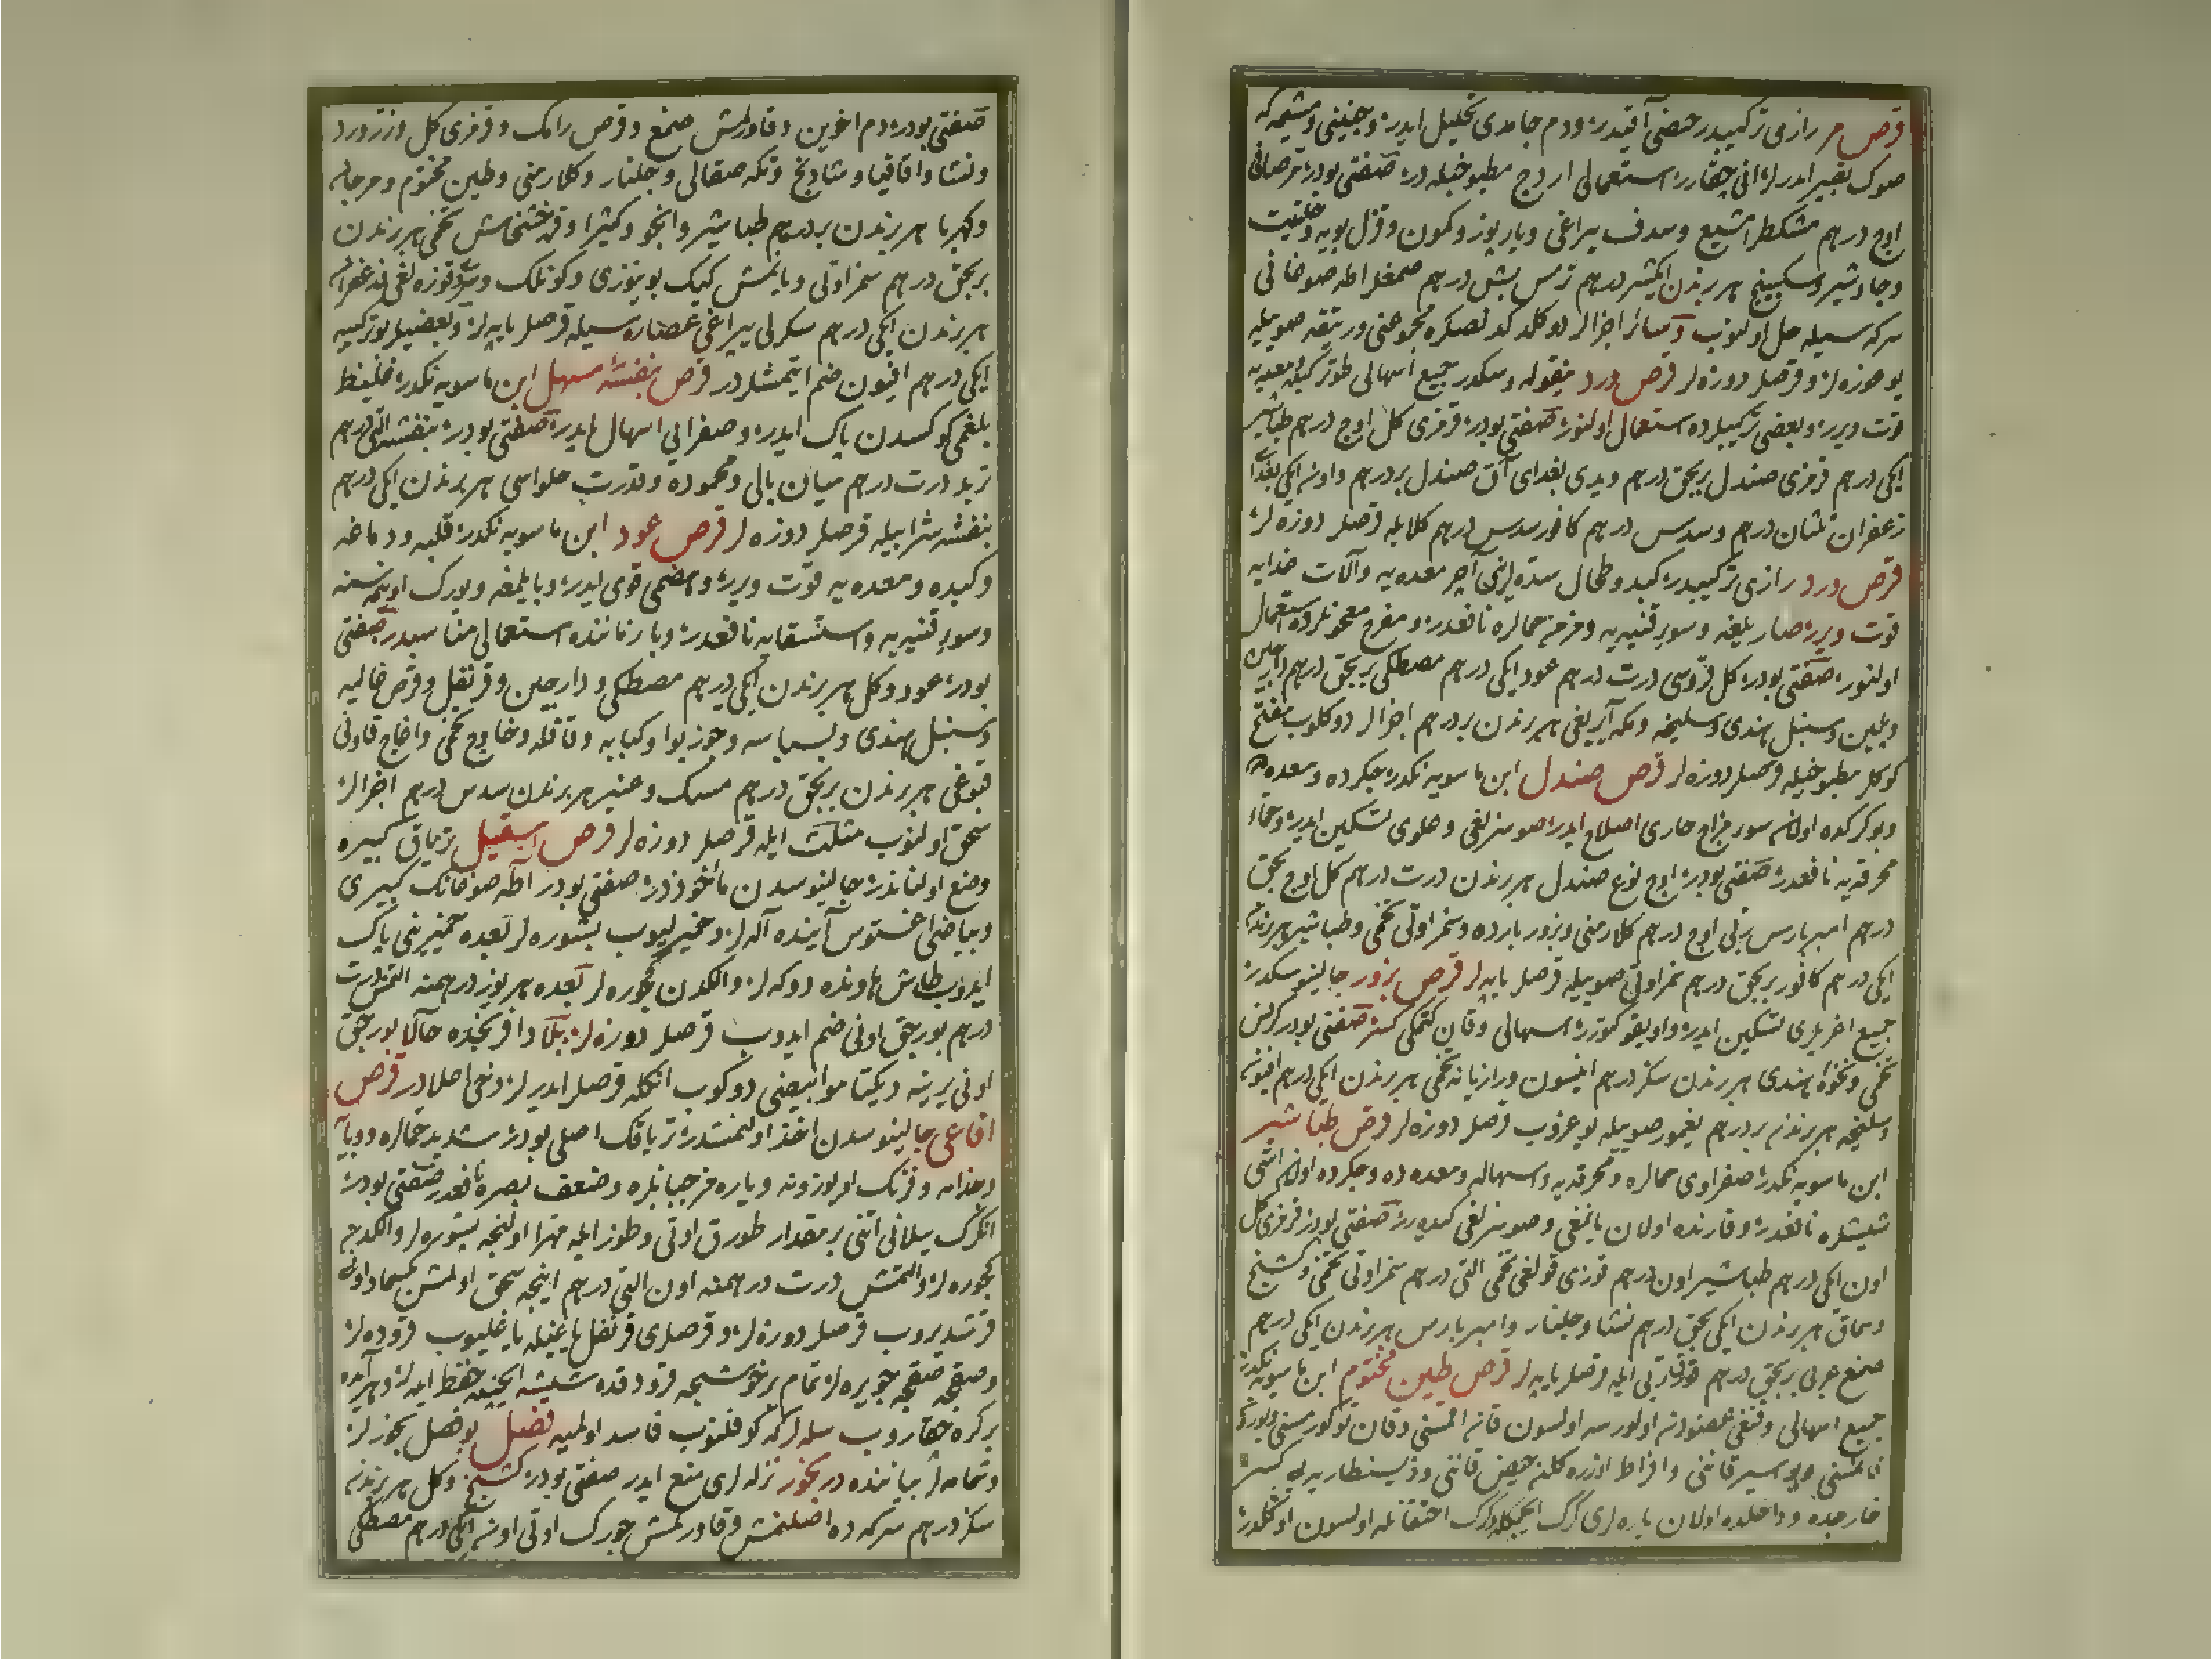 قرص مر رازی ترکیبیدر حیضی آقیدر ودم جامدی تحلیل ایدر وجنینی ومشیمه که
صوک تعبیر ایدرلر انی چقارر استعمالی اردج مطبوخیله در صفتی بودر مر صافی
اوج درهم مشکطرامشیع وسدف یپراغی ویارپوز وکمون وقزل بویه وحلتیت
وجاوشیر وسکبینج هر برندن ایکیشر درهم ترمس بش درهم صمغلر اطه صوغانی
سرکه سیله حل اولنوب وسائر اجزالر دوکلدکدنصکره مجموعنی صوییله
یوغوره لر وقرصلر دوزه لر قرص ورد جمیع اسهالی طوتر کبده ومعدیه
قوت ویرر وبعضی ترکیبلرده استعمال اولنور صفتی بودر قرمزی کل اوج درهم طباشیر
ایکی درهم قرمزی صندل بریجق درهم ویدی بغدای آق صندل بر درهم واون ایکی بغدای
زعفران ثلثان درهم وسدس درهم کافور سدس درهم کلابله قرصلر دوزه لر
قرص ورد رازی ترکیبیدر کبد وطحال سده لرینی آچر معده یه وآلات غذایه
قوت ویرر صار بلغمه وسوء قنیه یه ومزمن حمالره نافعدر ومفرح معجونلرده استعمال
اولنور صفتی بودر کل قروسی درت درهم عود ایکی درهم مصطکی بریجق درهم دارچین
وسنبل هندی وسلیخه ومکه آیریغی هر برندن بر درهم اجزالر دوکلوب
کوکلر مطبوخیله قرصلر دوزه لر قرص صندل ابن ماسویه نکدر جکرده ومعده ده
وبوکرکده اولان سوء مزاج حاری اصلاح ایدر صوسزلغی تسکین ایدر وحماء
محرقه یه نافعدر صفتی بودر اوج نوع صندل هر برندن درت درهم کل اوج بجق
درهم امبرباریس ربی اوج درهم کلارمنی وبزور بارده وسمزاوتی تخمی وطباشیر هر برندن
ایکی درهم کافور بریجق درهم سمزاوتی صوییله قرصلر یاپه لر قرص بزور جالینوسکدر
جمیع اغریلری تسکین ایدر واویقو کتورر اسهالی وقان کتمکی کسر صفتی بودر کرفس
تخمی ونخواه هندی هر برندن سکز درهم انیسون ورازیانه تخمی هر برندن ایکی درهم افیون
وسلیخه هر برندن بر درهم یغمور صوییله یوغروب قرصلر دوزه لر قرص طباشیر
ابن ماسویه نکدر صفراوی حمالره ومحرقه یه واسهاله ومعده ده وجکرده اولان
نافعدر وقارنده اولان یانغی وصوسزلغی کیدرر صفتی بودر قرمزی کل
اون ایکی درهم طباشیر اون درهم قوزی قولغی تخمی التی درهم سمزاوتی تخمی وکشنیج
وسماق هر برندن ایکی بجق درهم نشا وجلنار وامبرباریس هر برندن ایکی درهم
صمغ عربی بریجق درهم ایله قرصلر یاپه لر قرص طین مختوم ابن ماسویه نکدر
جمیع اسهالی وقنغی عضودن اولورسه اولسون قان اقمسنی وقان توکورمسنی وبورن
قانمسنی وبواسیر قاننی وافراط اوزره کلن حیض قاننی وذوسنطاریه یی کسر
خارجده وداخلده اولان یاره لری کرک ایچمکله کرک احتقانله اولسون اوکلدر
صفتی بودر دم اخوین وقاورلمش صمغ وقرص رامک وقرمزی کل وزرورد
ونشا واقاقیا وشادنج وتکه صقالی وجلنار وکلارمنی وطین مختوم ومرجان
وکهربا هر برندن بر درهم طباشیر وانجو وکثیرا وقره خشخاش تخمی هر برندن
بریجق درهم سمزاوتی ویانمش کیک بوینوزی وکونلک
هر برندن ایکی درهم سکرلی یپراغی عصاره سیله قرصلر یاپه لر وبعضیلر بو ترکیبه
ایکی درهم افیون ضم ایتمشلردر قرص بنفشه مسهل ابن ماسویه نکدر غلیظ
بلغمی کوکسدن پاک ایدر وصفرایی اسهال ایدر صفتی بودر بنفشه التی درهم
تربد درت درهم میان بالی ومحموده وقدرت حلواسی هر برندن ایکی درهم
بنفشه شرابیله قرصلر دوزه لر قرص عود ابن ماسویه نکدر قلبه ودماغه
وکبده ومعده یه قوت ویرر وهضمی قوی ایدر وبایلمغه ویورک اوینمه سنه
وسوء قنیه یه واستسقایه نافعدر وبارنانده استعمالی مناسبدر صفتی
بودر عود وکل هر برندن ایکی درهم مصطکی ودارچین وقرنفل وقرص غالیه
وسنبل هندی وبسباسه وجوز بوا وکبابه وقاقله وخاوج تخمی واغاج قاونی
قبوغی هر برندن بریجق درهم مسک وعنبر هر برندن سدس درهم اجزالر
سحق اولنوب مثلث ایله قرصلر دوزه لر قرص اسقیل تریاق کبیره
وضع اولنانذر جالینوسدن مأخوذدر صفتی بودر اطه صوغاننک کبیری
وبیاضی اغستوس آینده آلرلر وخمیرلیوب پشوره لر بعده خمیرینی پاک
ایدوب طاش هاونده دوکه لر والکدن کچوره لر بعده هر یوز درهمنه التمش درت
درهم بورجق اونی ضم ایدوب قرصلر دوزه لر وافرنجده حالا بورجق
اونی یرینه دیکتامو ابیضی دوکوب انکله قرصلر ایدرلر دخی اعلادر قرص
افاعی جالینوسدن اخذ اولنمشدر تریاقک اصلی بودر شدید حمالره ووبایه
وجذامه وفرنک اویوزونه ویاره وضعف بصره نافعدر صفتی بودر
انکرک ییلانی اتنی بر مقدار طورق اوتی وطوز ایله مهرا اولنجه پشوره لر والکدن
کچوره لر والتمش درت درهمنه اون التی درهم اینجه سحق اولمش کسماد اونی
قرشدیروب قرصلر دوزه لر وقرصلری قرنفل یاغیله یاغلیوب قروده لر
وصقجه صقجه چویره لر تمام برخوشجه قرودقده شیشه ایچنده حفظ ایده لر وهر آیده
بر کره چقاروب سله لر که کوفلنوب فاسد اولمیه فصل بو فصل بخورلر
وشمامه لر بیاننده در بخور نزله لری منع ایدر صفتی بودر کشنیج وکل هر برندن
سکز درهم سرکه ده اصلنمش وقاورلمش چورک اوتی اون ایکی درهم مصطکی